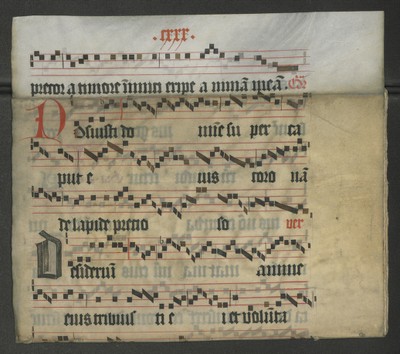 .cxxx.
precor a timore inimici eripe a nimā meā.
Posuisti do mine su per ca
put e ius coro nā
de lapide precio so ver
Desideriū anime
eius tribuis ti e i et volūta